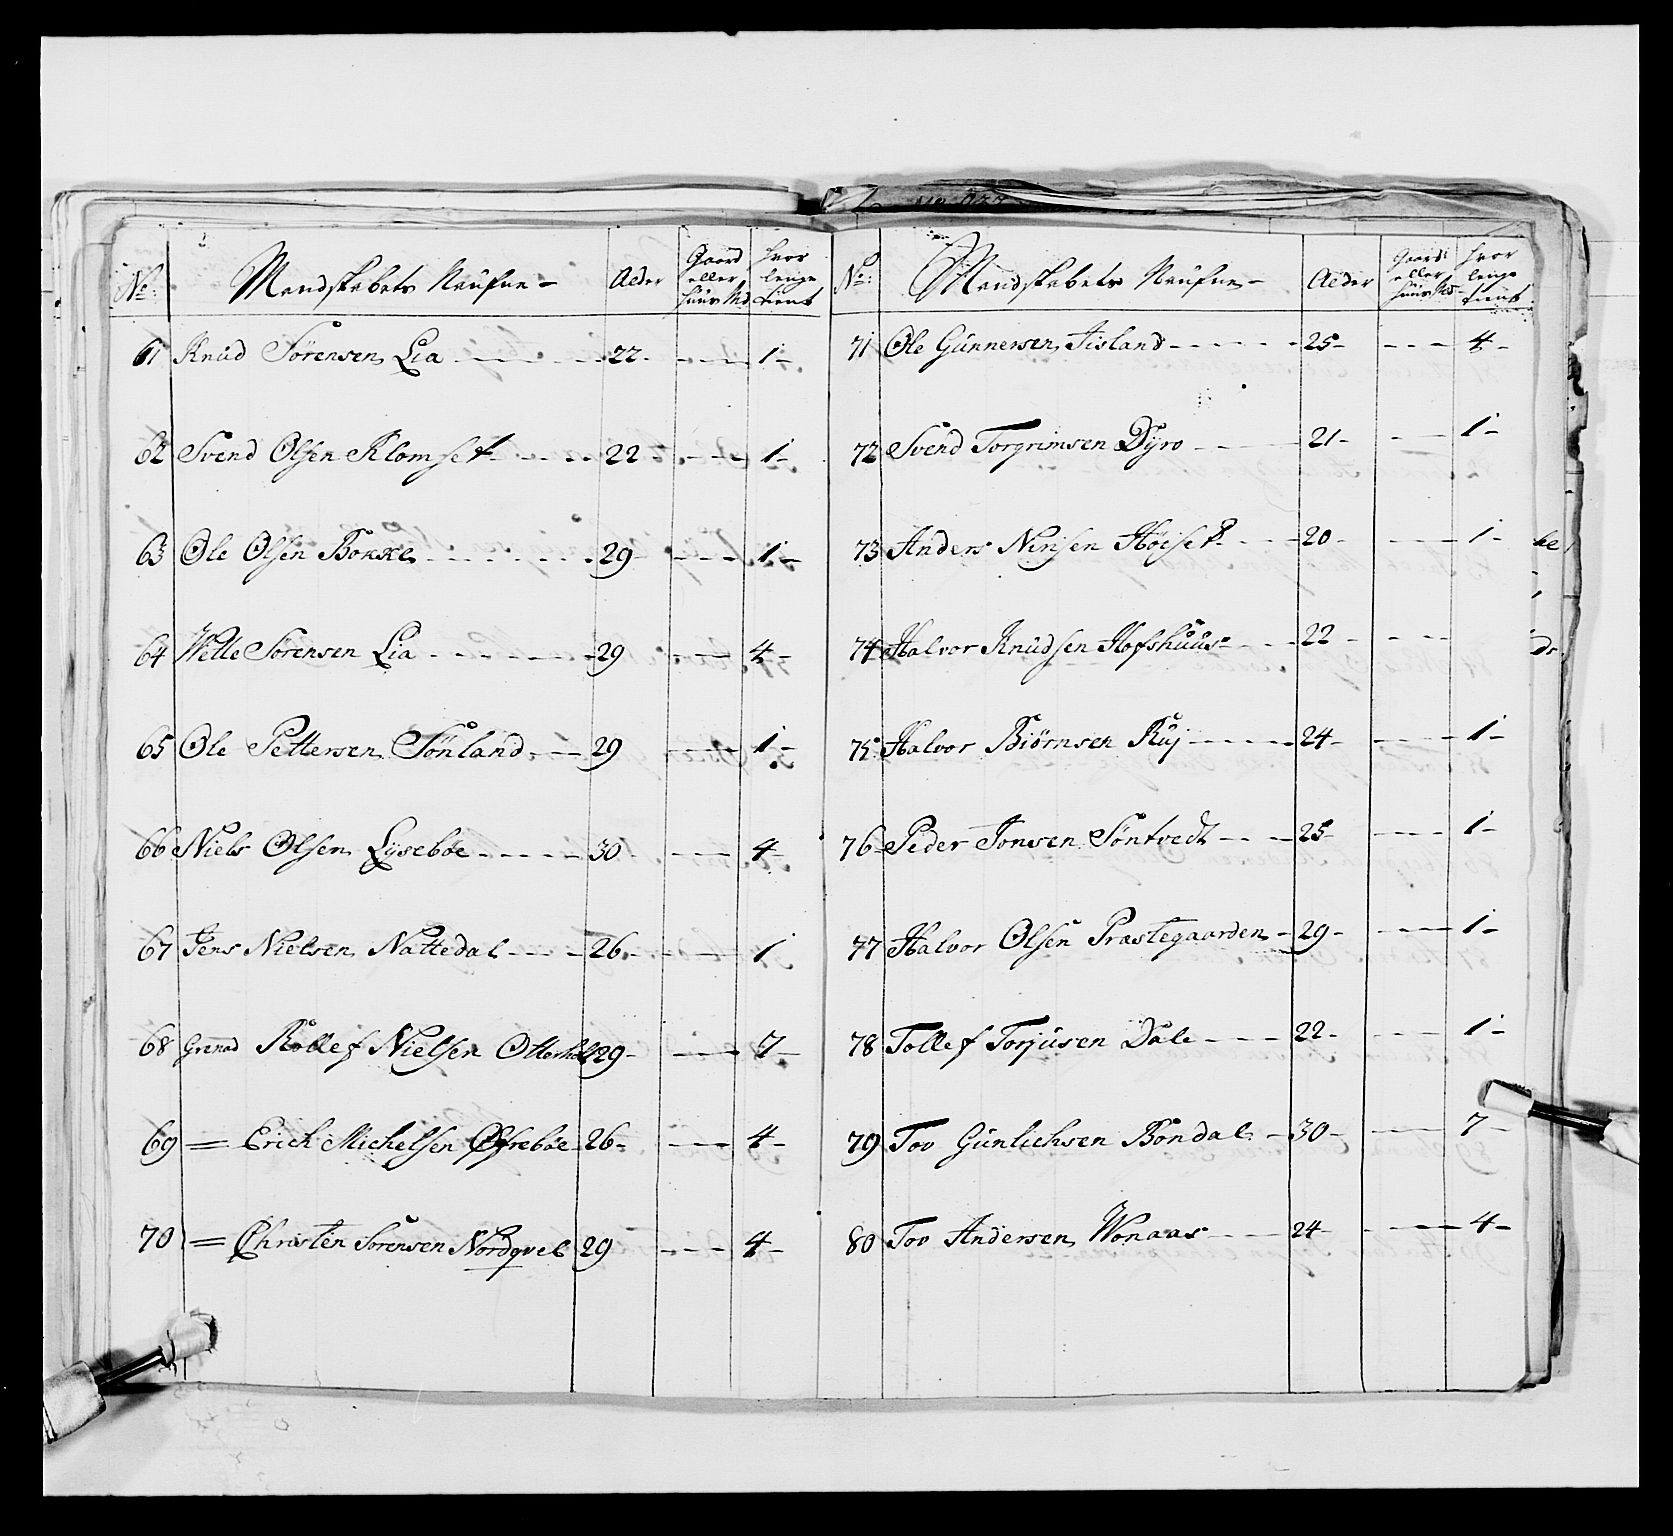 No: Mandskabets Naufne - Aeder Gaard eller Huus Md hvor lenge tient
61 Knud Sörensen Lia - - - - 22 - - - - 1 -
62 Svend Olsen Klomset - - - - 22 - - - 1 -
63 Ole Olsen - - - - - - 29 - - - 1 -
64 Wetle Sörensen Lia - - - - - 29 - - - 4 -
65 Ole Pettersen Sönland - - - 29 - - - 1 -
66 Niels Olsen Lÿseböe - - - - - 30 - - - 4 -
67 Jens Nielsen Nattedal - - - - 26 - - - 1
68 Grenad Rollef Nielsen Otterholt 29 - - - - 7 -
69 = Erich Michelsen Öfreböe - 26 - - - - 4 -
70 = Christen Sörensen Nordqvel 29 - - - 4 -
No: Mandskabets Naufne - Aeder Gaard eller Huus Md - hvor lenge tient
71 Ole Gunnersen Tisland - - - - - 25 - - - - 4 -
72 Svend Torgrimsen Dÿro - - - - 21 - - - - 1 -
73 Anders Nirisen Höiset - - - - 20 - - - - 1 -
74 Halvor Knudsen Hofshuus - - - 22 - - - -
75 Halvor Biörnsen Ruj - - - - - 24 - - - - 1 -
76 Peder Jonsen Söntvedt - - - - 25 - - - - 1 -
77 Halvor Olsen Præstegaarden - 29 - - - - 1 -
78 Tollef Torjusen Dale - - - - 22 - - - - 1 -
79 Tov Gunlichsen Bondal - 30 - - - - 7 -
80 Tov Andersen Wonaas - - - - 24 - - - - 4 -